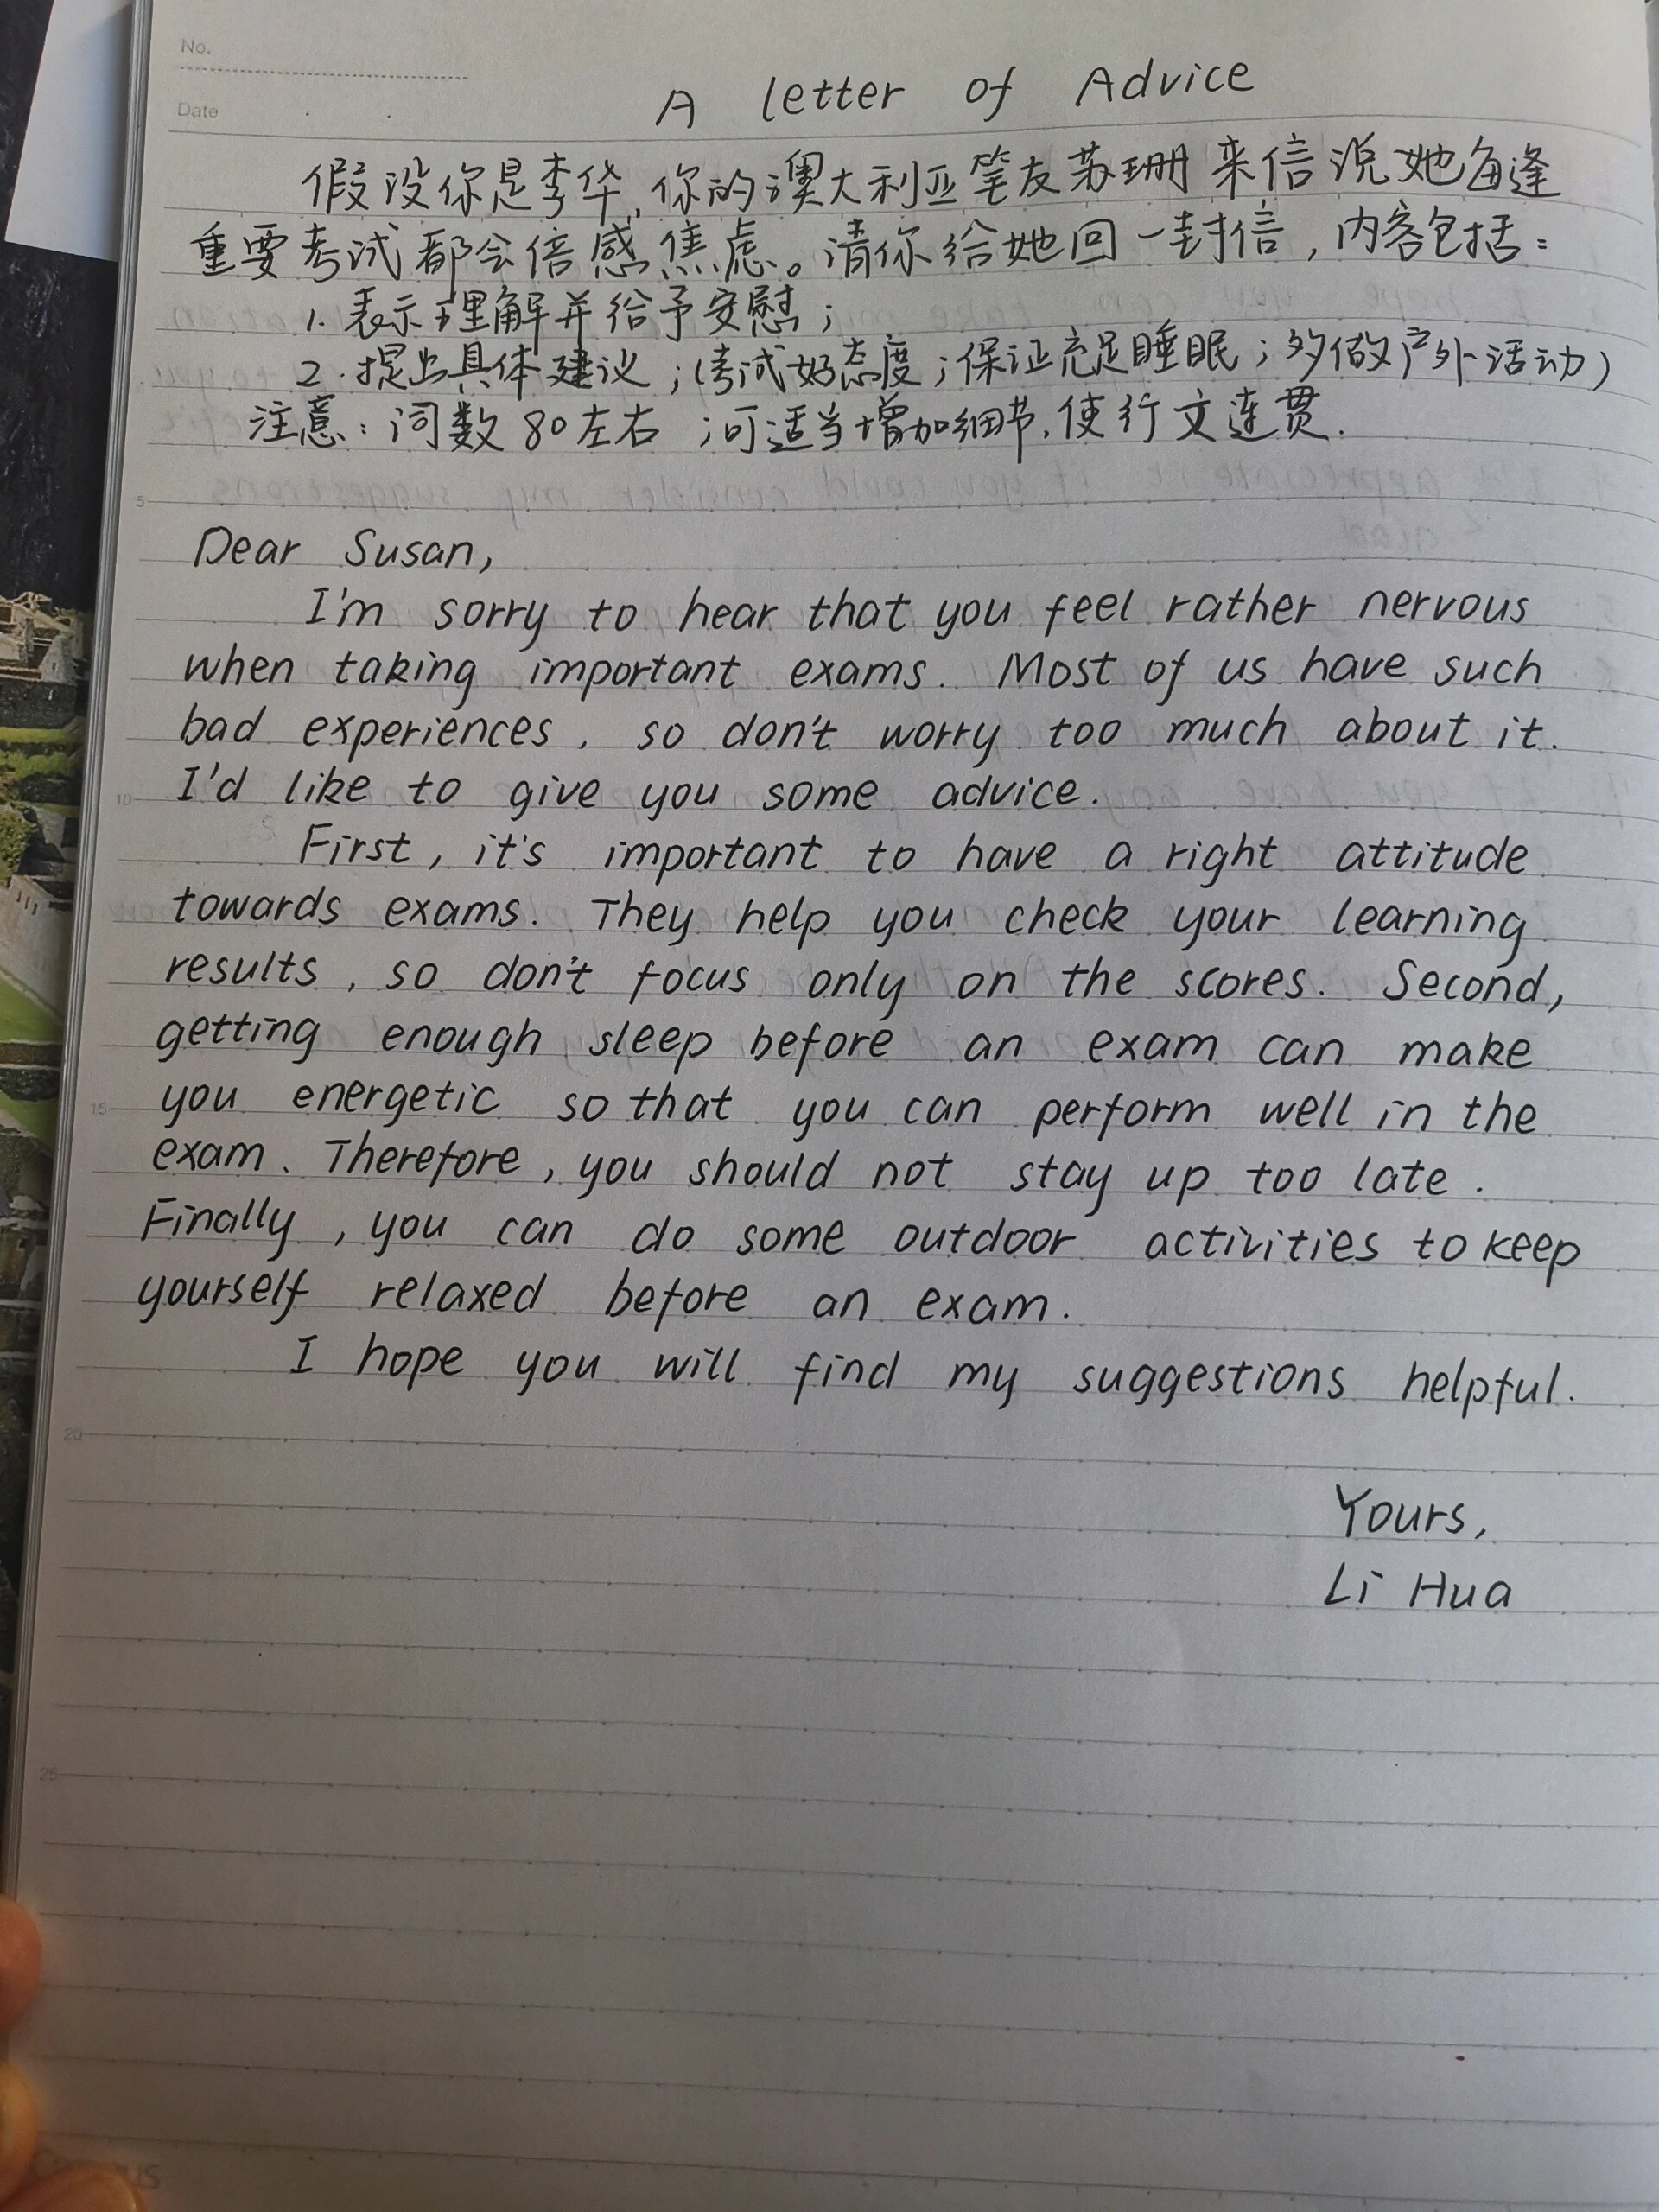 No.
Date
A letter of Advice
假设你是李华,你的澳大利亚笔友苏珊来信说她每逢
重要考试都会倍感焦虑。请你给她回一封信,内容包括:
1. 表示理解并给予安慰;
2. 提出具体建议;(考试好态度;保证充足睡眠;多做户外活动)
注意:词数80左右;可适当增加细节,使行文连贯.
5
Dear Susan,
I'm sorry to hear that you feel rather nervous
when taking important exams. Most of us have such
bad experiences, so don't worry too much about it.
10 I'd like to give you some advice.
First, it's important to have a right attitude
towards exams. They help you check your learning
results, so don't focus only on the scores. Second,
getting enough sleep before an exam can make
15 you energetic so that you can perform well in the
exam. Therefore, you should not stay up too late.
Finally, you can do some outdoor activities to keep
yourself relaxed before an exam.
I hope you will find my suggestions helpful.
20
Yours,
Li Hua
25